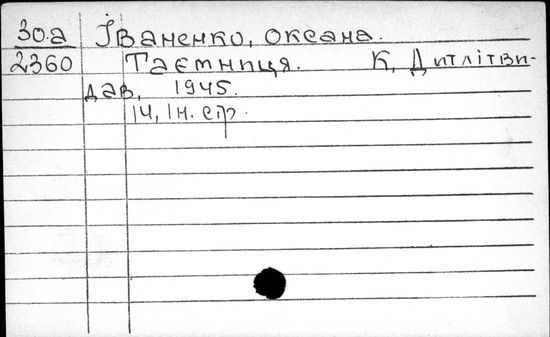 30.а Іваненко, Оксана.
2360 Таємниця. К, Дитлітви-
дав, 1945.
14, Ін. стр.